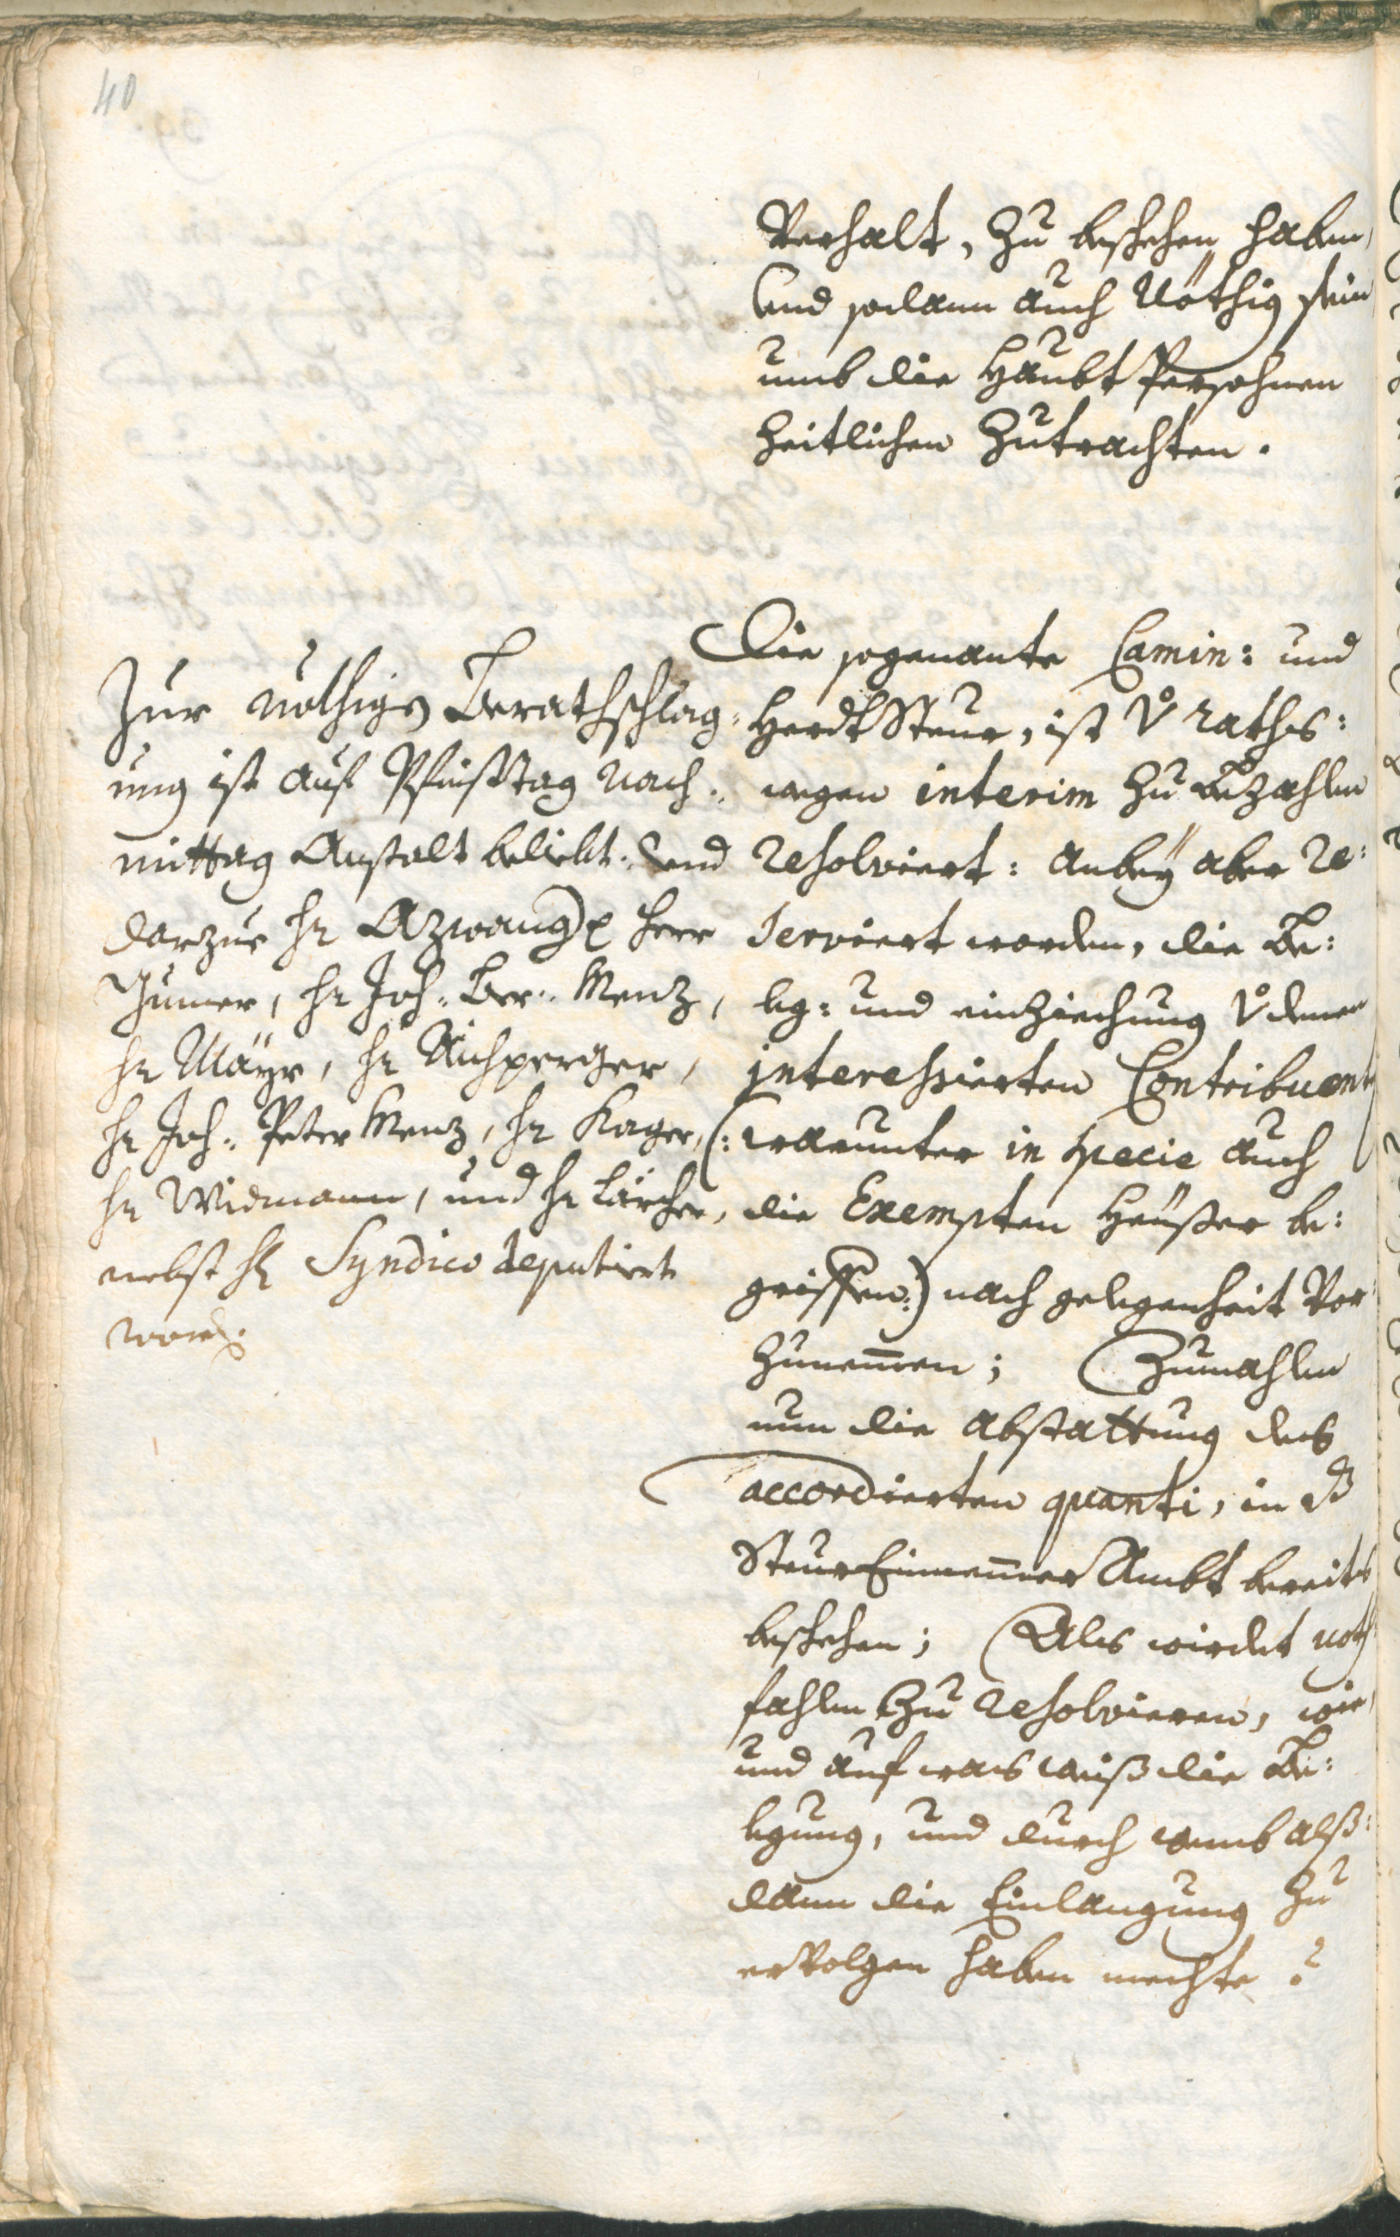 40
Verhalt, zu beschehen haben,
und sodann auch Nöthig sein
umb die Haubt Persohnen
Zeitlichen Zutrachten.
Zur nöthigen Berathschlag„
ung ist auf Pfinsttag nach„
mittag Anstalt beliebt: und
darzue hr Azwanger herr
Gumer, hr Joh: Ber: Menz,
hr Mäyr, hr Aichperger,
hr Joh: Peter Menz, hr Kager,
hr Widmann, und hr Lärcher,
nebst hr Syndico deputirt
word.
Die sogenante Camin: und
Herdt Steur, ist v̊ raths:
wegen interim zu bezahlen
resolviert: anbey aber re:
serviert worden, die Be:
leg: und einziechung v̊ denen
interessierten Contribuenten
(:warunter in specie auch
die Exempten Heüßer be:
griffen:) nach gelegenheit vor
zunem̄en; Zumahlen
nun die abstattung des
accordierten quanti, in dß
Steur Einnem̄er Ambt bereits
beschehen; Als wirdet noth
fahlen zu resolvieren, wie
und auf was weiß die Be:
legung, und durch wemb alß:
dann die Einlangung zu
ervolgen haben mechte?